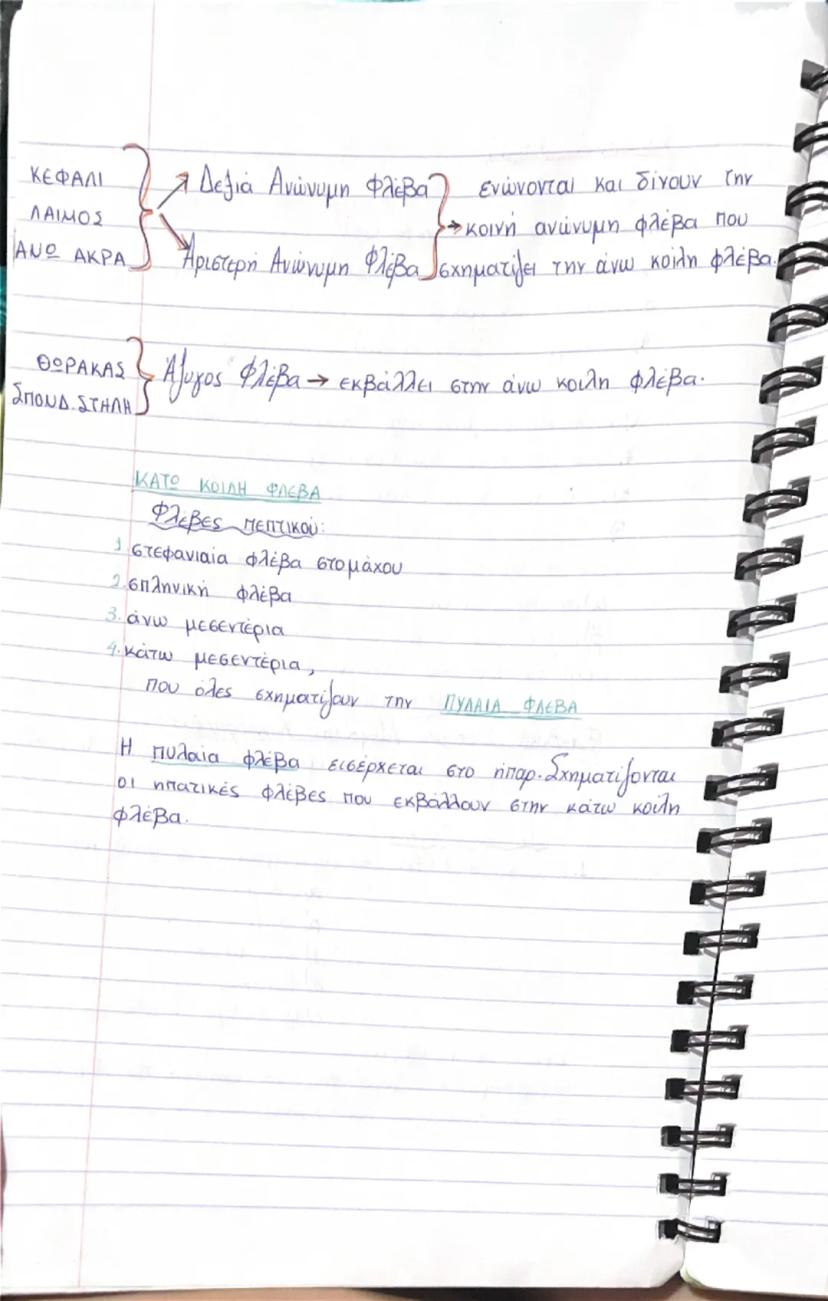 ΚΕΦΑΛΙ
ΛΑΙΜΟΣ
ΑΝΩ ΑΚΡΑ
Δεξιά Ανώνυμη Φλέβα
Αριστερή Ανώνυμη Φλέβα
ενώνονται και δίνουν την
κοινή ανώνυμη φλέβα που
σχηματίζει την άνω κοίλη φλέβα.
ΘΩΡΑΚΑΣ
ΣΠΟΝΔ. ΣΤΗΛΗ
Άζυγος Φλέβα → εκβάλλει στην άνω κοιλη φλέβα.
ΚΑΤΩ ΚΟΙΛΗ ΦΛΕΒΑ
Φλέβες πεπτικού:
1. στεφανιαία φλέβα στομάχου
2. σπληνική φλέβα
3. άνω μεσεντέρια
4. κάτω μεσεντέρια,
που όλες σχηματίζουν την ΠΥΛΑΙΑ ΦΛΕΒΑ
Η πυλαία φλέβα εισέρχεται στο ήπαρ. Σχηματίζονται
οι ηπατικές φλέβες που εκβάλλουν στην κάτω κοίλη
φλέβα.